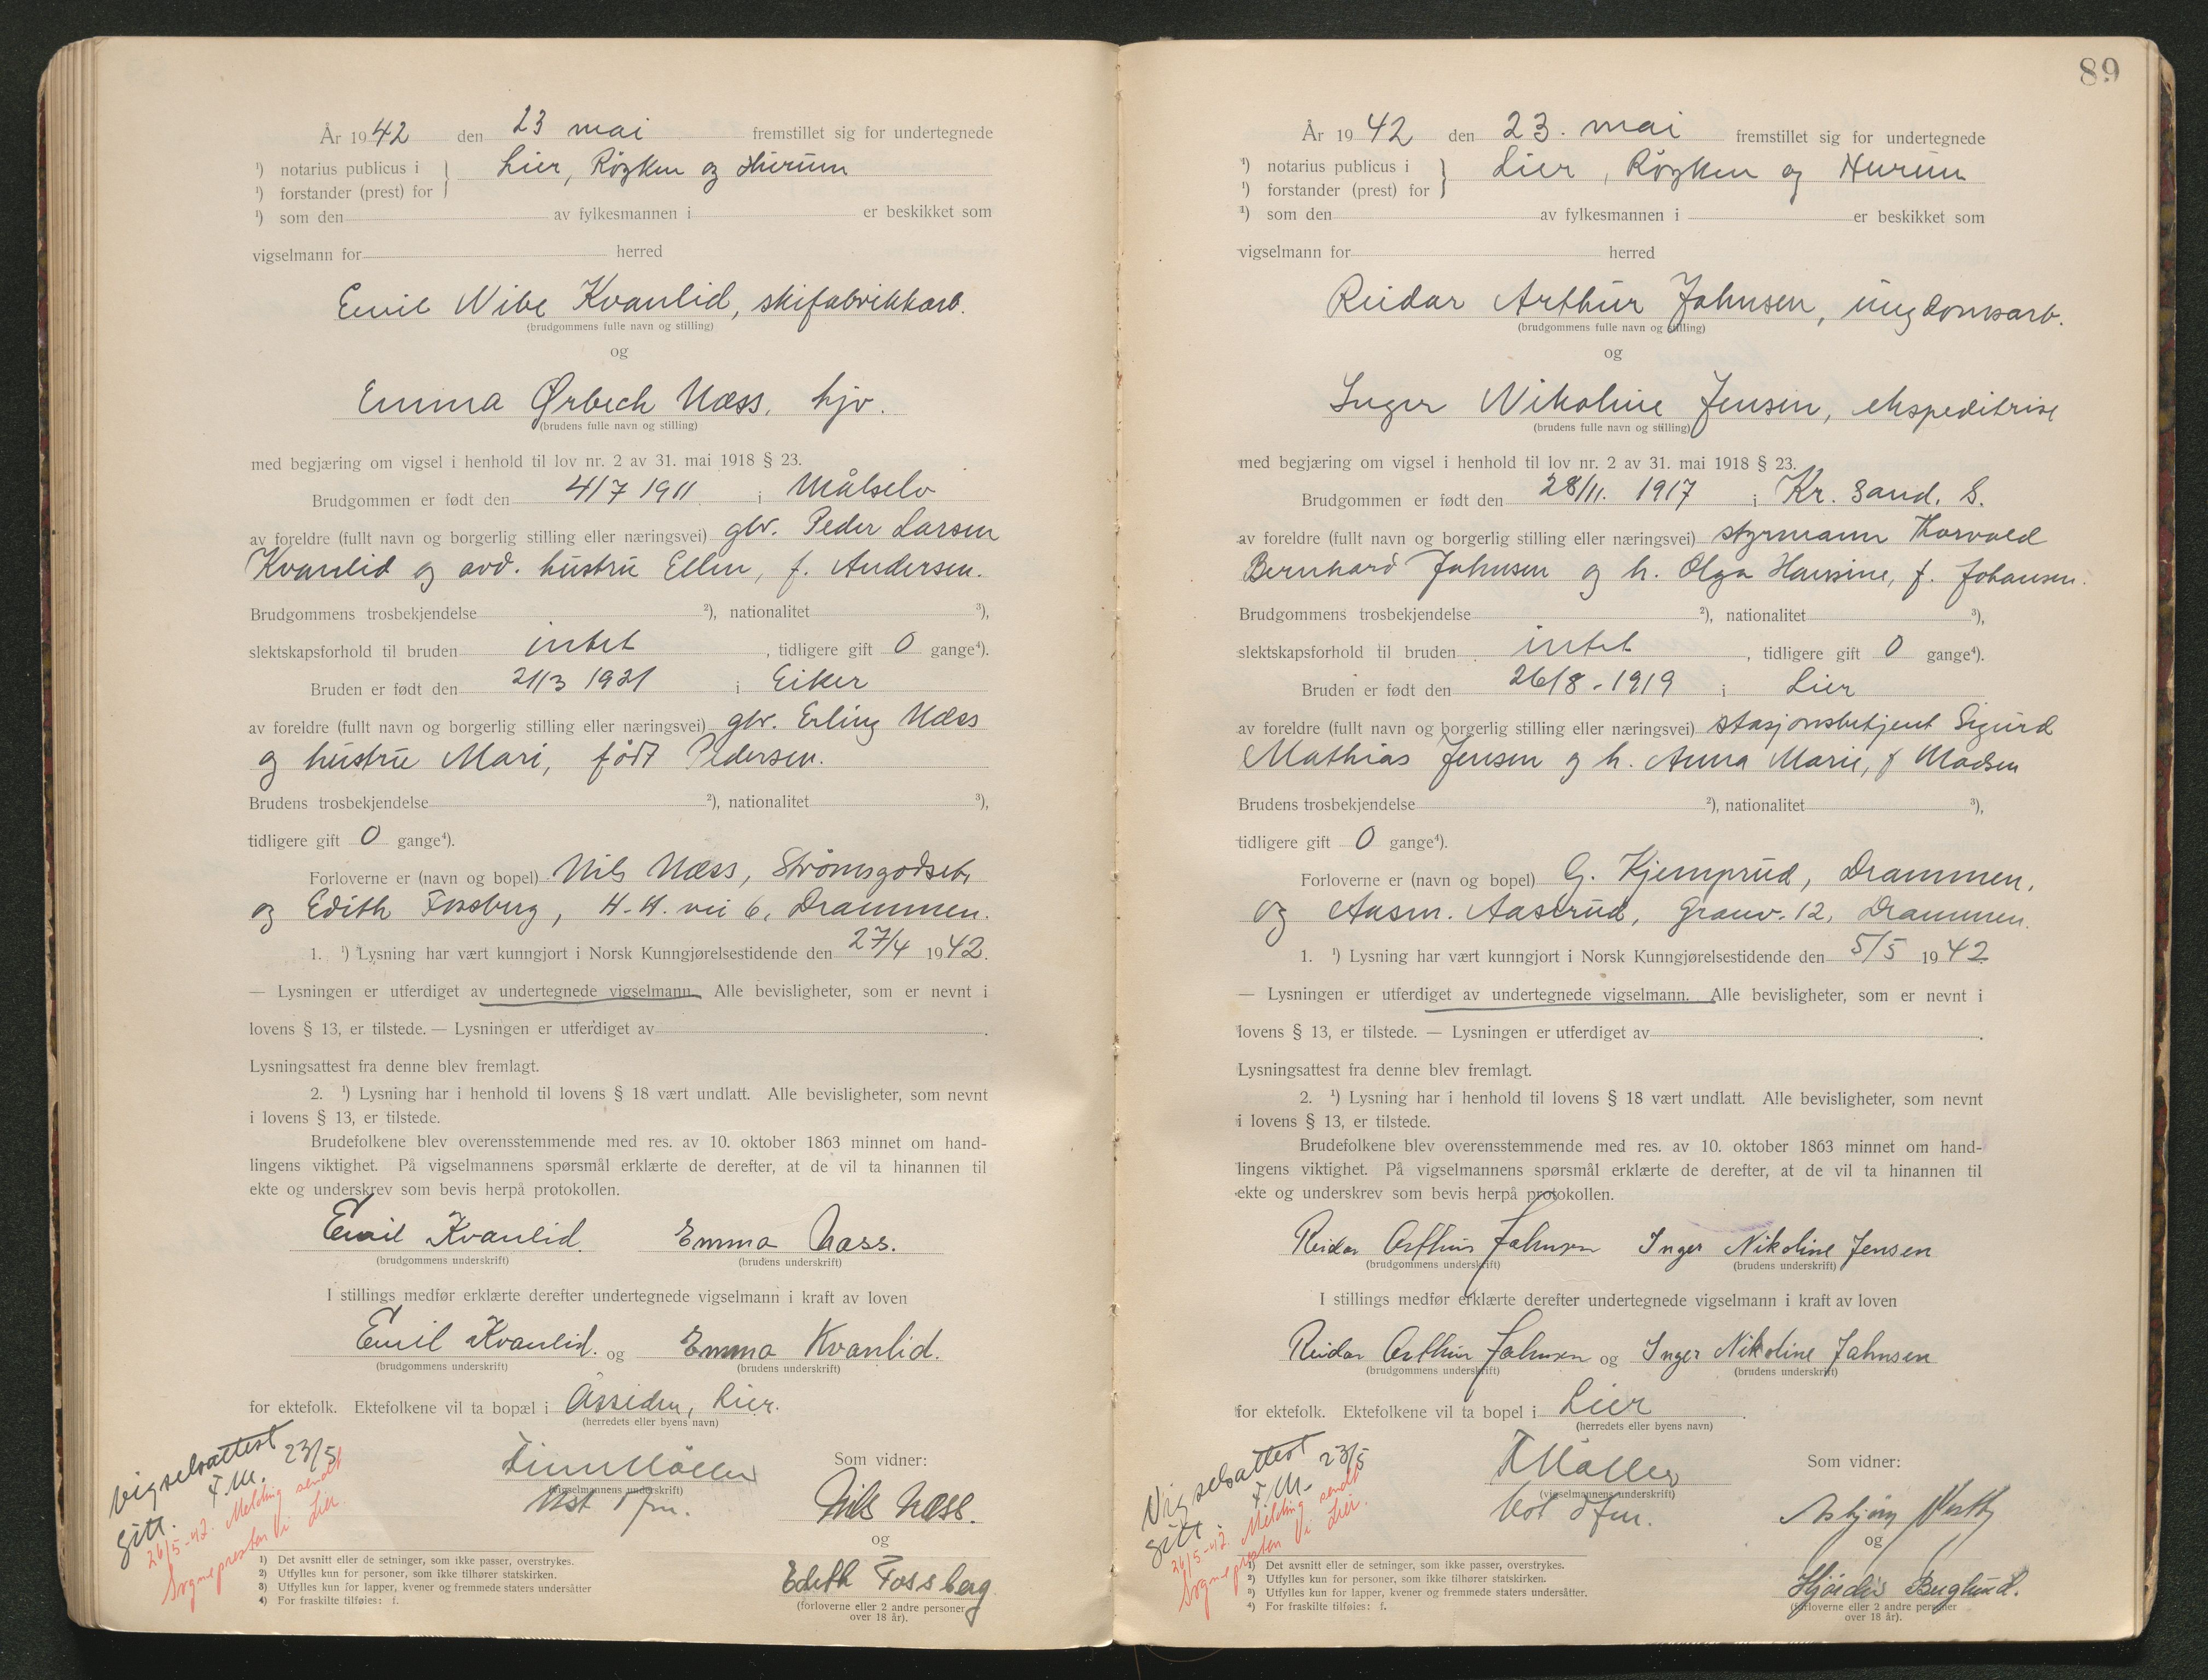 År 1942 den 23 mai fremstillet sig for undertegnede
¹) notarius publicus i } Lier, Røyken og Hurum
¹) forstander (prest) for
¹) som den av fylkesmannen i er beskikket som
vigselmann for herred
Emil Nibe Kvanlid, skifabrikkarb.
(brudgommens fulle navn og stilling)
og
Emma Ørbech Næss, hjv.
(brudens fulle navn og stilling)
med begjæring om vigsel i henhold til lov nr. 2 av 31. mai 1918 § 23.
Brudgommen er født den 4/7 1911 i Målselv
av foreldre (fullt navn og borgerlig stilling eller næringsvei) gbr. Peder Larsen
Kvanlid og avd. hustru Ellen, f. Andersen.
Brudgommens trosbekjendelse ²), nationalitet ³),
slektskapsforhold til bruden intet, tidligere gift 0 gange⁴).
Bruden er født den 21/3 1921 i Eiker
av foreldre (fullt navn og borgerlig stilling eller næringsvei) gbr. Erling Næss
og hustru Mari, født Pedersen.
Brudens trosbekjendelse ²), nationalitet ³),
tidligere gift 0 gange⁴).
Forloverne er (navn og bopel) Nils Næss, Strømsgodset,
og Edith Fossberg, H.H. vei 6, Drammen.
1. ¹) Lysning har vært kunngjort i Norsk Kunngjørelsestidende den 27/4 1942.
— Lysningen er utferdiget av undertegnede vigselmann. Alle bevisligheter, som er nevnt i
lovens § 13, er tilstede. — Lysningen er utferdiget av .
Lysningsattest fra denne blev fremlagt.
2. ¹) Lysning har i henhold til lovens § 18 vært undlatt. Alle bevisligheter, som nevnt
i lovens § 13, er tilstede.
Brudefolkene blev overensstemmende med res. av 10. oktober 1863 minnet om hand-
lingens viktighet. På vigselmannens spørsmål erklærte de derefter, at de vil ta hinannen til
ekte og underskrev som bevis herpå protokollen.
Emil Kvanlid. Emma Næss.
(brudgommens underskrift) (brudens underskrift)
I stillings medfør erklærte derefter undertegnede vigselmann i kraft av loven
Emil Kvanlid. og Emma Kvanlid.
(brudgommens underskrift) (brudens underskrift)
for ektefolk. Ektefolkene vil ta bopæl i Åssiden, Lier.
(herredets eller byens navn)
Vigselsattest
gitt. F.M. 23/5
26/5-42. Melding sendt
Sognepresten i Lier.
Finn Møller
(vigselmannens underskrift)
Som vidner:
Nils Næss.
og
Edith Fossberg
(forloverne eller 2 andre personer
over 18 år).
1) Det avsnitt eller de setninger, som ikke passer, overstrykes.
2) Utfylles kun for personer, som ikke tilhører statskirken.
3) Utfylles kun for lapper, kvener og fremmede staters undersåtter
4) For fraskilte tilføies: f.
89
År 1942 den 23. mai fremstillet sig for undertegnede
¹) notarius publicus i } Lier, Røyken og Hurum
¹) forstander (prest) for
¹) som den av fylkesmannen i er beskikket som
vigselmann for herred
Reidar Arthur Jahnsen, ungdomsarb.
(brudgommens fulle navn og stilling)
og
Inger Nikoline Jensen, ekspeditrise
(brudens fulle navn og stilling)
med begjæring om vigsel i henhold til lov nr. 2 av 31. mai 1918 § 23.
Brudgommen er født den 28/11. 1917 i Kr. sand. S.
av foreldre (fullt navn og borgerlig stilling eller næringsvei) styrmann Thorvald
Bernhard Jahnsen og h. Olga Hansine, f. Johansen.
Brudgommens trosbekjendelse ²), nationalitet ³),
slektskapsforhold til bruden intet, tidligere gift 0 gange⁴).
Bruden er født den 26/8 - 1919 i Lier
av foreldre (fullt navn og borgerlig stilling eller næringsvei) stasjonsbetjent Sigurd
Mathias Jensen og h. Anna Marie, f Madsen
Brudens trosbekjendelse ²), nationalitet ³),
tidligere gift 0 gange⁴).
Forloverne er (navn og bopel) G. Kjemprud, Drammen,
og Aasm. Aaserud, Grauv. 12, Drammen.
1. ¹) Lysning har vært kunngjort i Norsk Kunngjørelsestidende den 5/5 1942
— Lysningen er utferdiget av undertegnede vigselmann. Alle bevisligheter, som er nevnt i
lovens § 13, er tilstede. — Lysningen er utferdiget av .
Lysningsattest fra denne blev fremlagt.
2. ¹) Lysning har i henhold til lovens § 18 vært undlatt. Alle bevisligheter, som nevnt
i lovens § 13, er tilstede.
Brudefolkene blev overensstemmende med res. av 10. oktober 1863 minnet om hand-
lingens viktighet. På vigselmannens spørsmål erklærte de derefter, at de vil ta hinannen til
ekte og underskrev som bevis herpå protokollen.
Reidar Arthur Jahnsen Inger Nikoline Jensen
(brudgommens underskrift) (brudens underskrift)
I stillings medfør erklærte derefter undertegnede vigselmann i kraft av loven
Reidar Arthur Jahnsen og Inger Nikoline Jahnsen
(brudgommens underskrift) (brudens underskrift)
for ektefolk. Ektefolkene vil ta bopel i Lier.
(herredets eller byens navn)
Vigselsattest
gitt. F.M. 23/5
26/5-42 Melding sendt
Sognepresten i Lier.
F Møller
(vigselmannens underskrift)
Som vidner:
Asbjørn
og
Hjørdis Berglund.
(forloverne eller 2 andre personer
over 18 år).
1) Det avsnitt eller de setninger, som ikke passer, overstrykes.
2) Utfylles kun for personer, som ikke tilhører statskirken.
3) Utfylles kun for lapper, kvener og fremmede staters undersåtter.
4) For fraskilte tilføies: f.